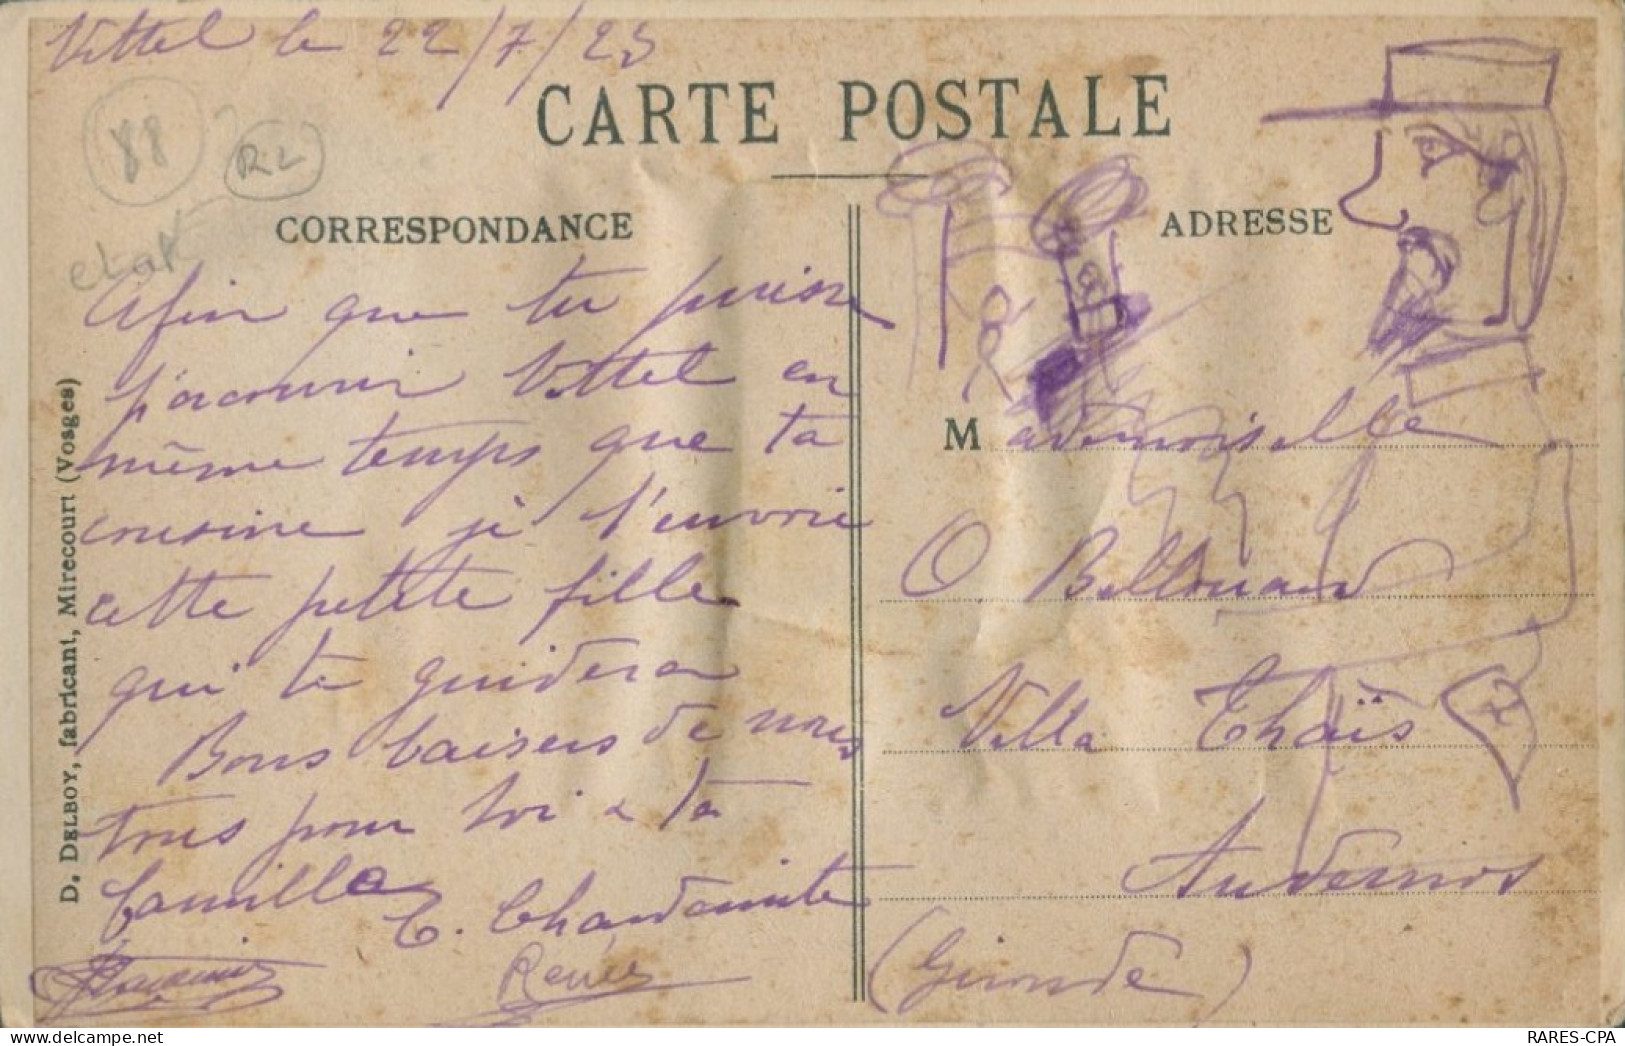 Vittel le 22/7/25
CARTE POSTALE
88
R2
CORRESPONDANCE
ADRESSE
Afin que tu puisse
parcourir Vittel en
même temps que ta
cousine je t'envoie
cette petite fille
qui te guidera
Bons baisers de nous
tous pour toi & ta
famille
Renée
Mademoiselle
O.
Villa Thaïs
Andernos
(Gironde)
D. DELBOY, fabricant, Mirecourt (Vosges)
RARES-CPA